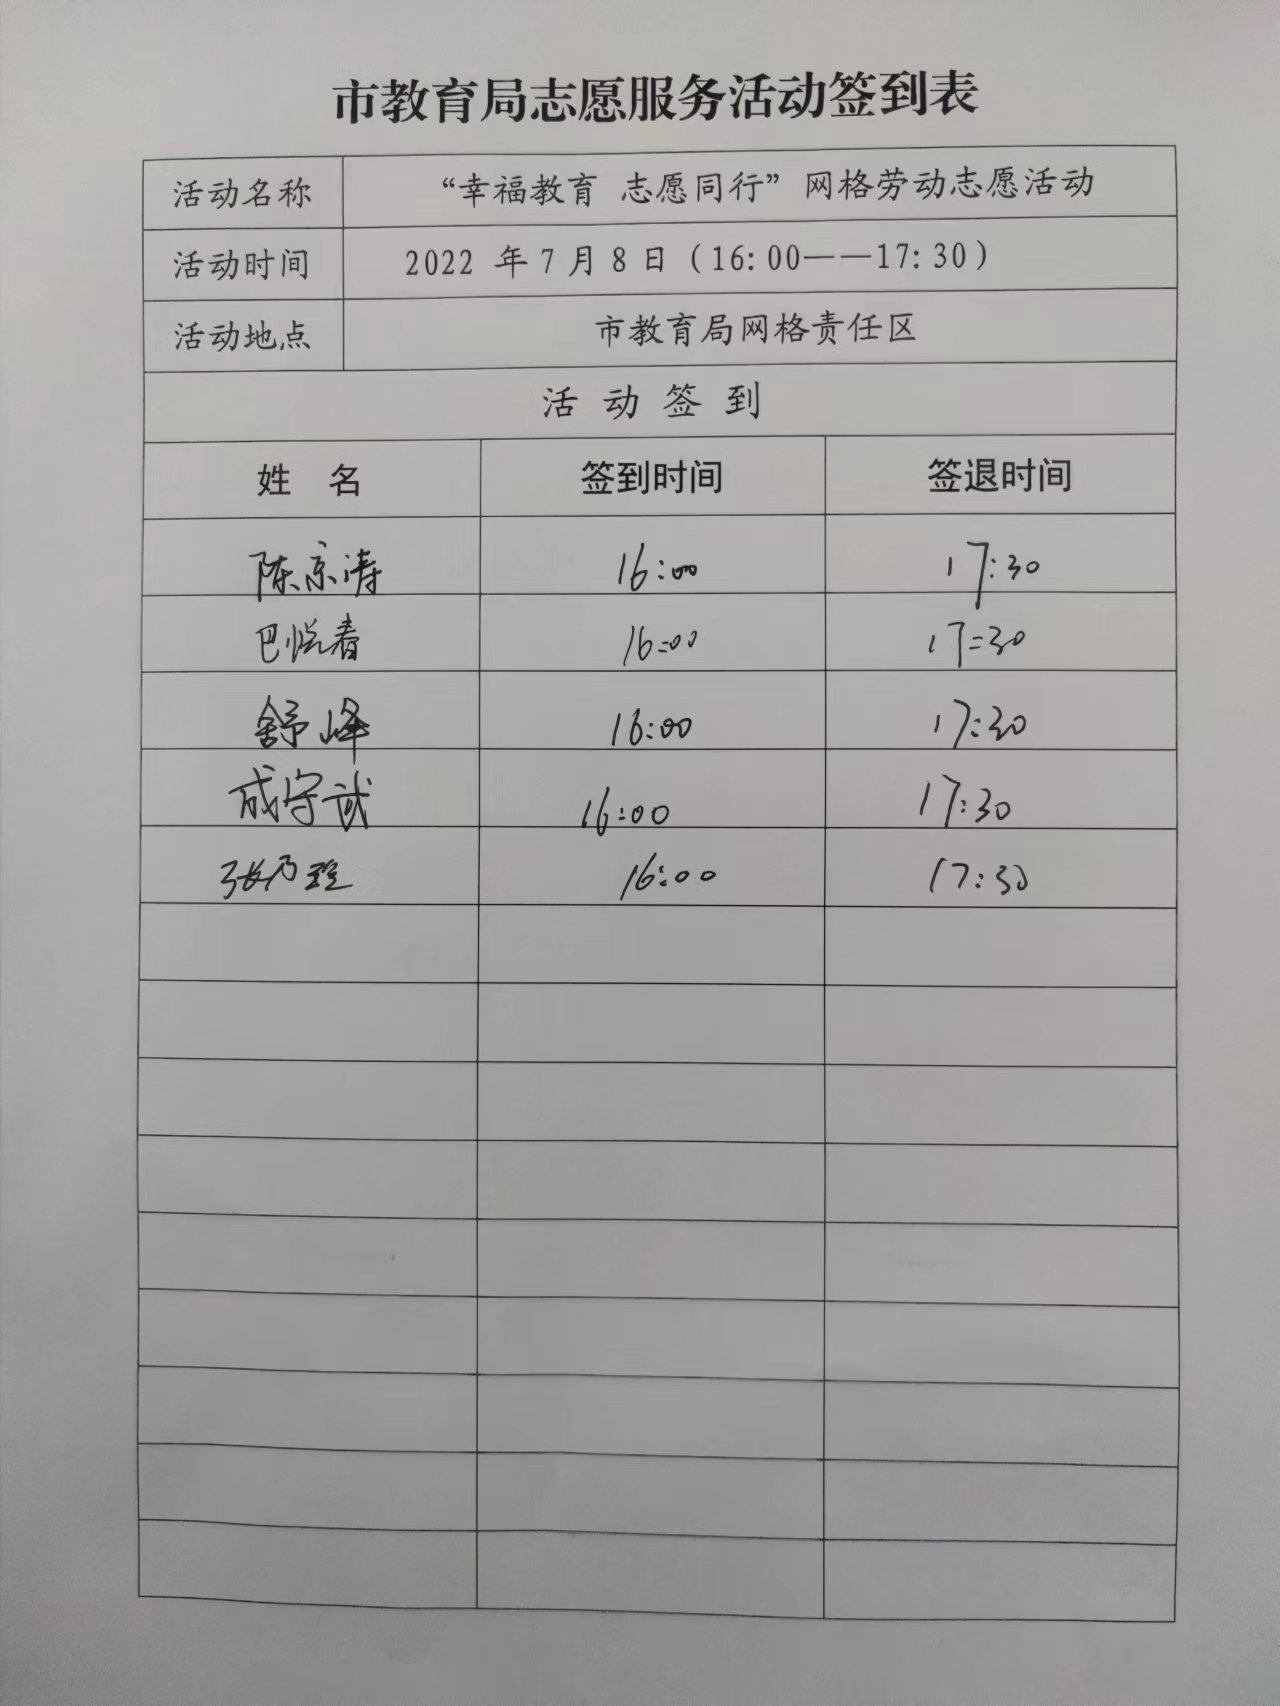 市教育局志愿服务活动签到表
活动名称 “幸福教育 志愿同行”网格劳动志愿活动
活动时间 2022 年 7 月 8 日（16:00——17:30）
活动地点 市教育局网格责任区
活 动 签 到
姓 名 签到时间 签退时间
陈京涛 16:00 17:30
巴悦春 16:00 17:30
舒峰 16:00 17:30
成守武 16:00 17:30
张乃 16:00 17:30